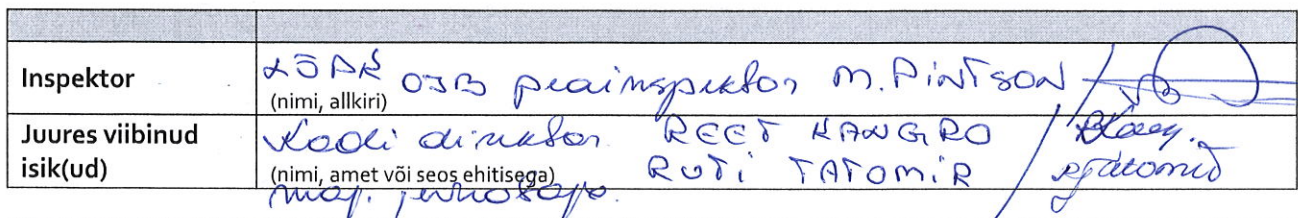 Inspektor
LÕPK OJB peainspektor M. PINTSON
(nimi, allkiri)
Juures viibinud
isik(ud)
Kooli direktor REET KANGRO
(nimi, amet või seos ehitisega) RUTI TATOMIR
maj. juhataja.